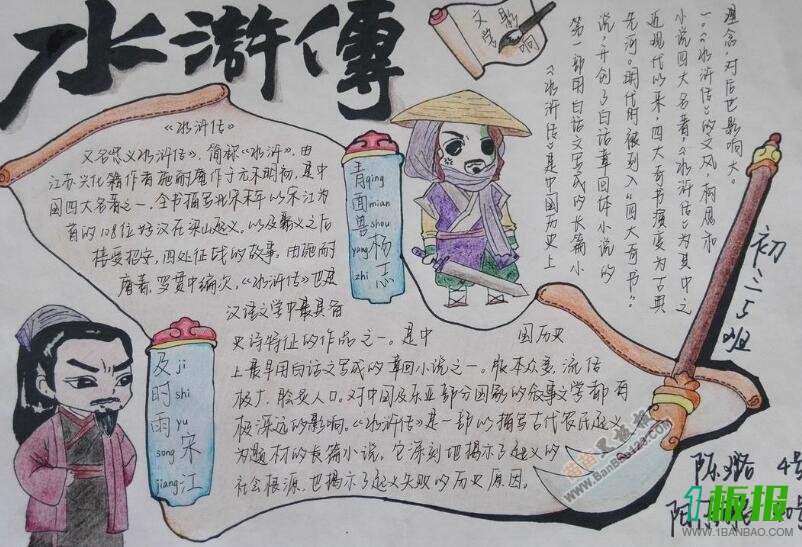 水滸傳
文学
影响
《水浒传》
又名忠义水浒传》,简称《水浒》,由
江苏兴化籍作者施耐庵作于元末明初,是中
国四大名著之一。全书描写北宋末年以宋江为
首的108位好汉在梁山起义,以及聚义之后
接受招安,四处征战的故事。由施耐
庵著,罗贯中编次,《水浒传》也是
汉语文学中最具备
史诗特征的作品之一。是中国历史
上最早用白话文写成的章回小说之一。版本众多,流传
极广,脍炙人口。对中国及东亚部分国家的叙事文学都有
极深远的影响。《水浒传》是一部以描写古代农民起义
为题材的长篇小说。它深刻地揭示了起义的
社会根源,也揭示了起义失败的历史原因。
青qing
面mian
兽shou
杨yang
志zhi
及ji
时shi
雨yu
宋song
江jiang
《水浒传》是中国历史上
第一部用白话文写成的长篇小
说,开创了白话章回体小说的
先河。明代时被列入"四大奇书"
近现代以来,四大奇书演变为古典
小说四大名著,《水浒传》为其中之
一。《水浒传》的文风,构思和
理念,对后世影响大。
初三5班
陈璐 4号
www.BanBao123.com
1板报
WWW.1BANBAO.COM